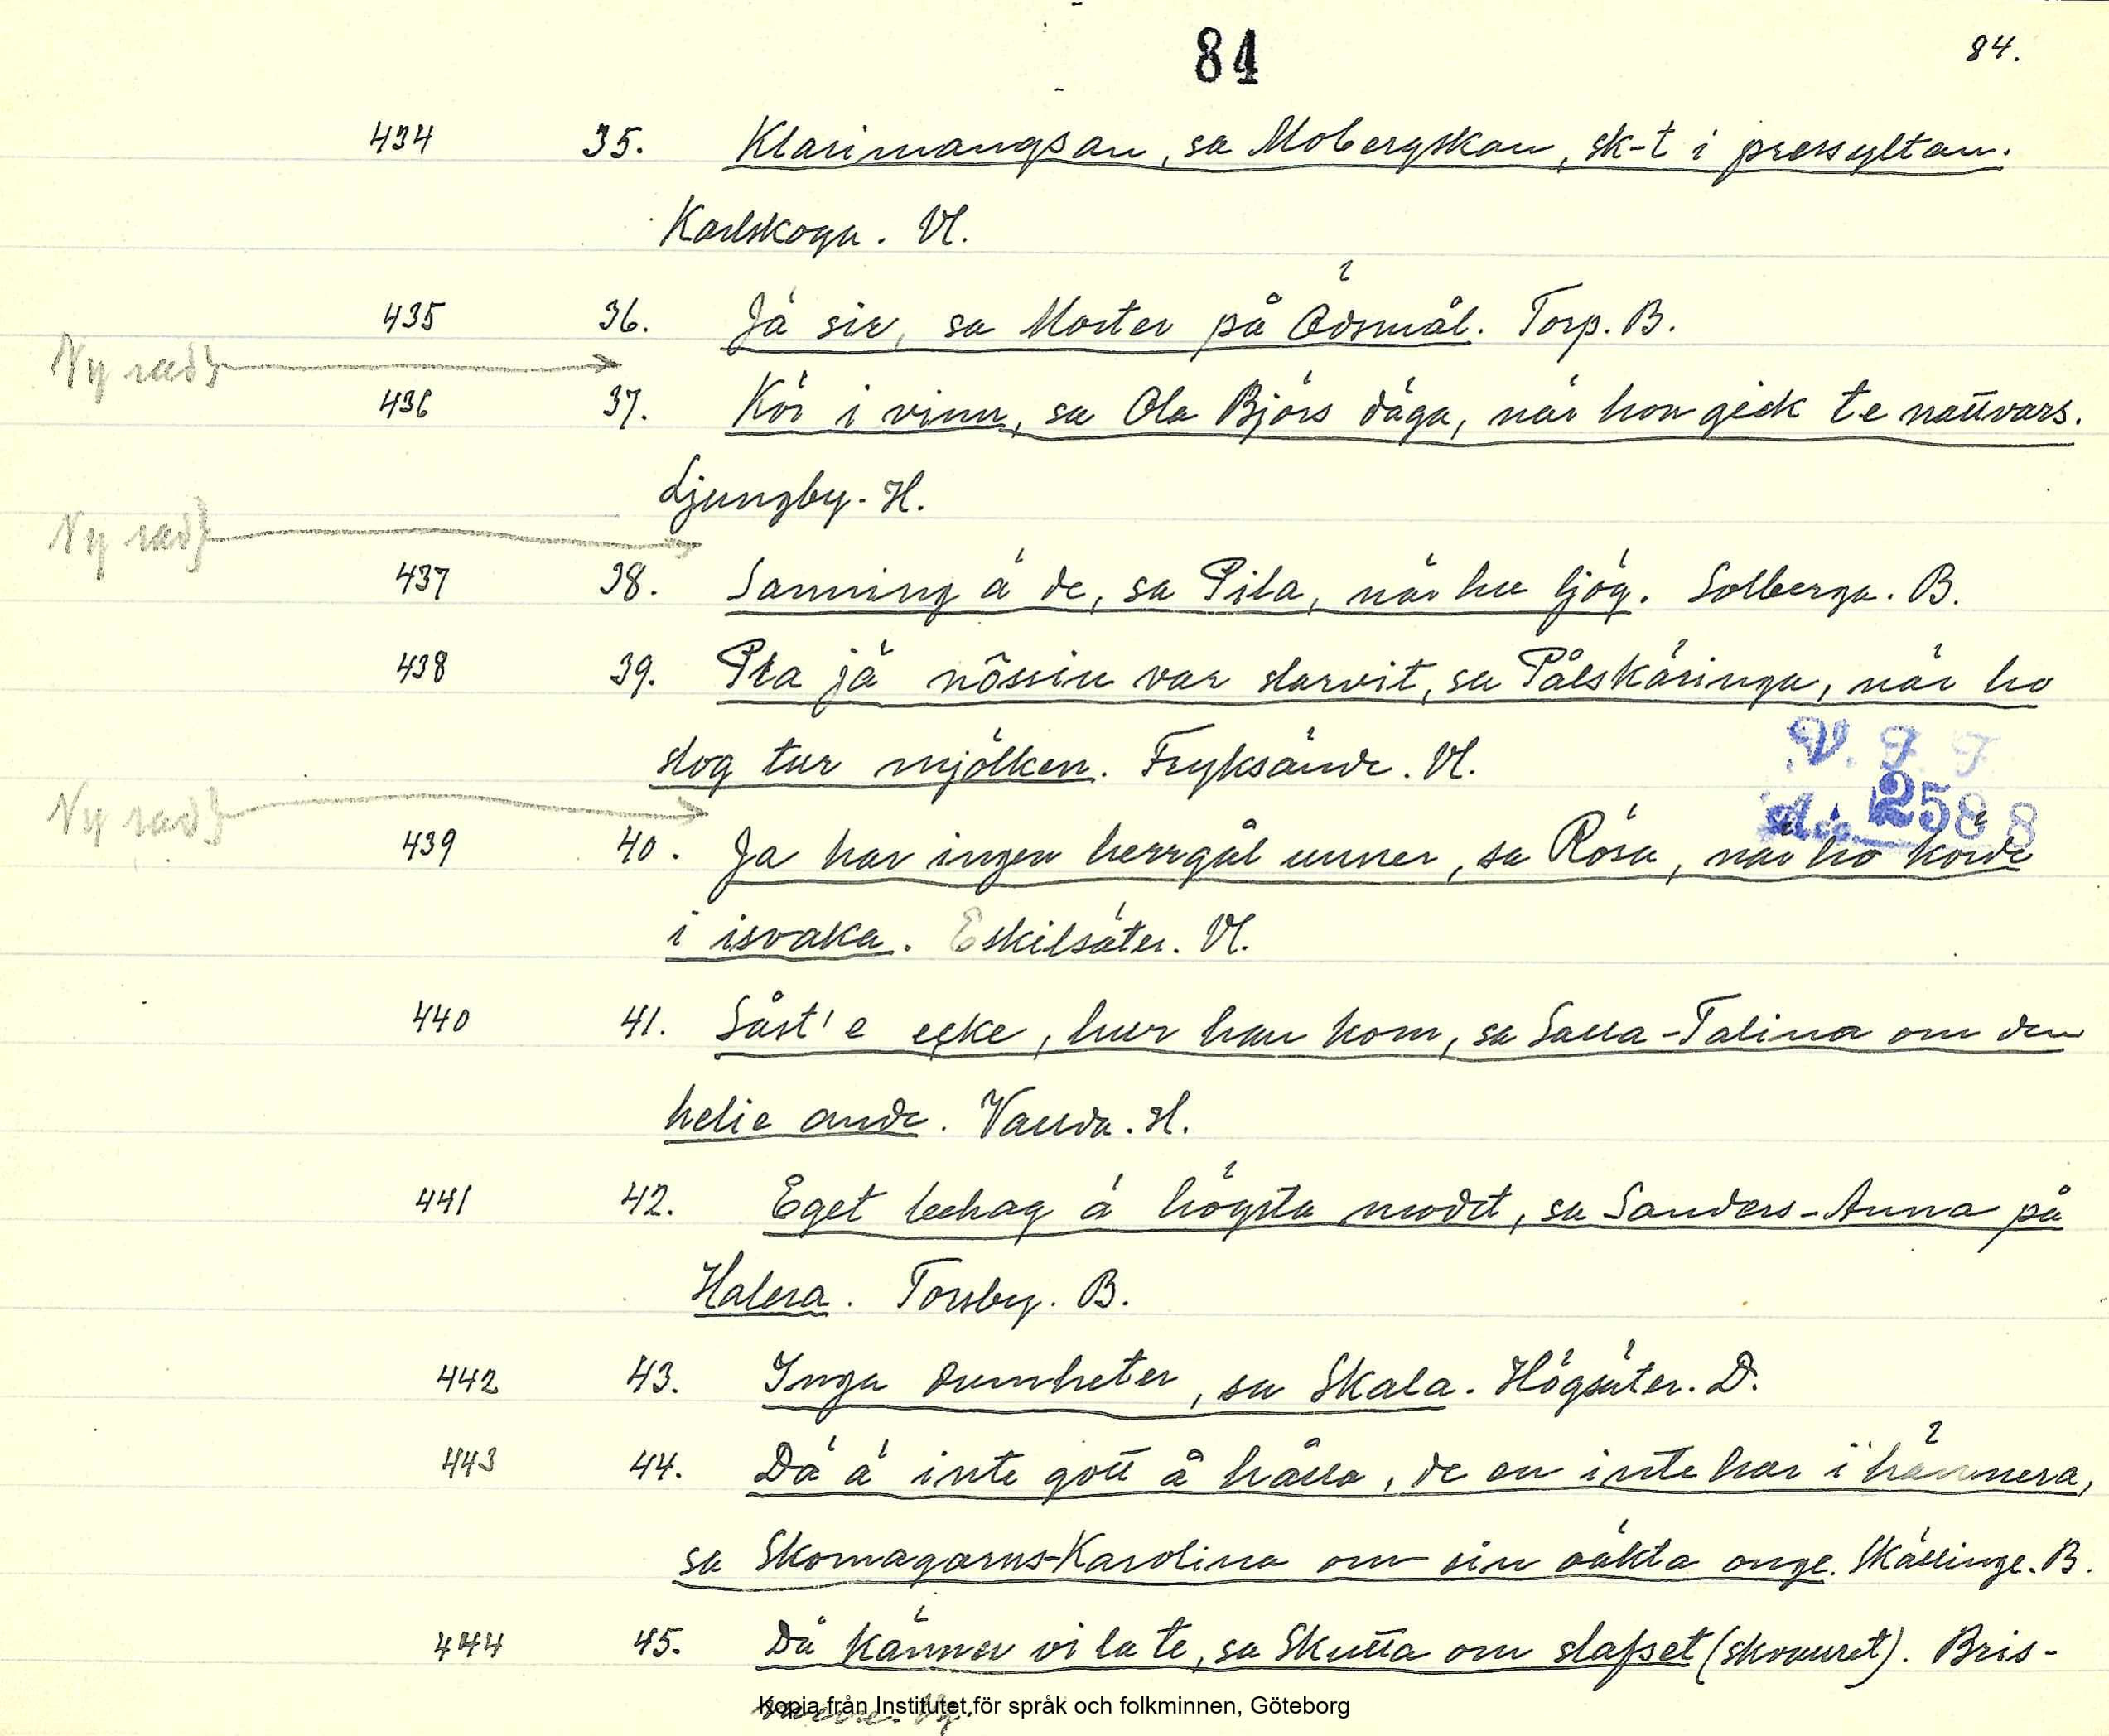 84 84.
434 35. Klarimangsan, sa Mobergskan, sk-t i pressyltan.
Karlskoga. Vl.
435 36. Jä sir, sa Morter på Ödsmål. Torp. B.
Ny rad}
436 37. Kör i vinn, sa Ola Björs däga, när hon gick te nattvars.
Ljungby. H.
Ny rad}
437 38. Sanning ä de, sa Pila, när hu ljög. Solberga. B.
438 39. Pra jä nôssin var slarvit, sa Pålskäringa, när ho
slog tur mjölken. Fryksände. Vl.
V. F. F.
Ny rad}
Acc. 2588
439 40. Ja har ingen herrgål unner, sa Rósa, när ho körde
i isvaka. Eskilsäter. Vl.
440 41. Såst' e ecke, hur han kom, sa Salla-Talina om den
helie ande. Vallda. H.
441 42. Eget behag ä högsta modet, sa Sanders-Anna på
Halera. Torsby. B.
442 43. Inga dumheter, sa Skala. Högsäter. D.
443 44. Dä ä inte gott å hålla, de en inte har i hännera,
sa Skomagarns-Karolina om sin oäkta onge. Skällinge. B.
444 45. Då känner vi la te, sa Skutta om slafset (skvauret). Bris-
Kopia från Institutet för språk och folkminnen, Göteborg